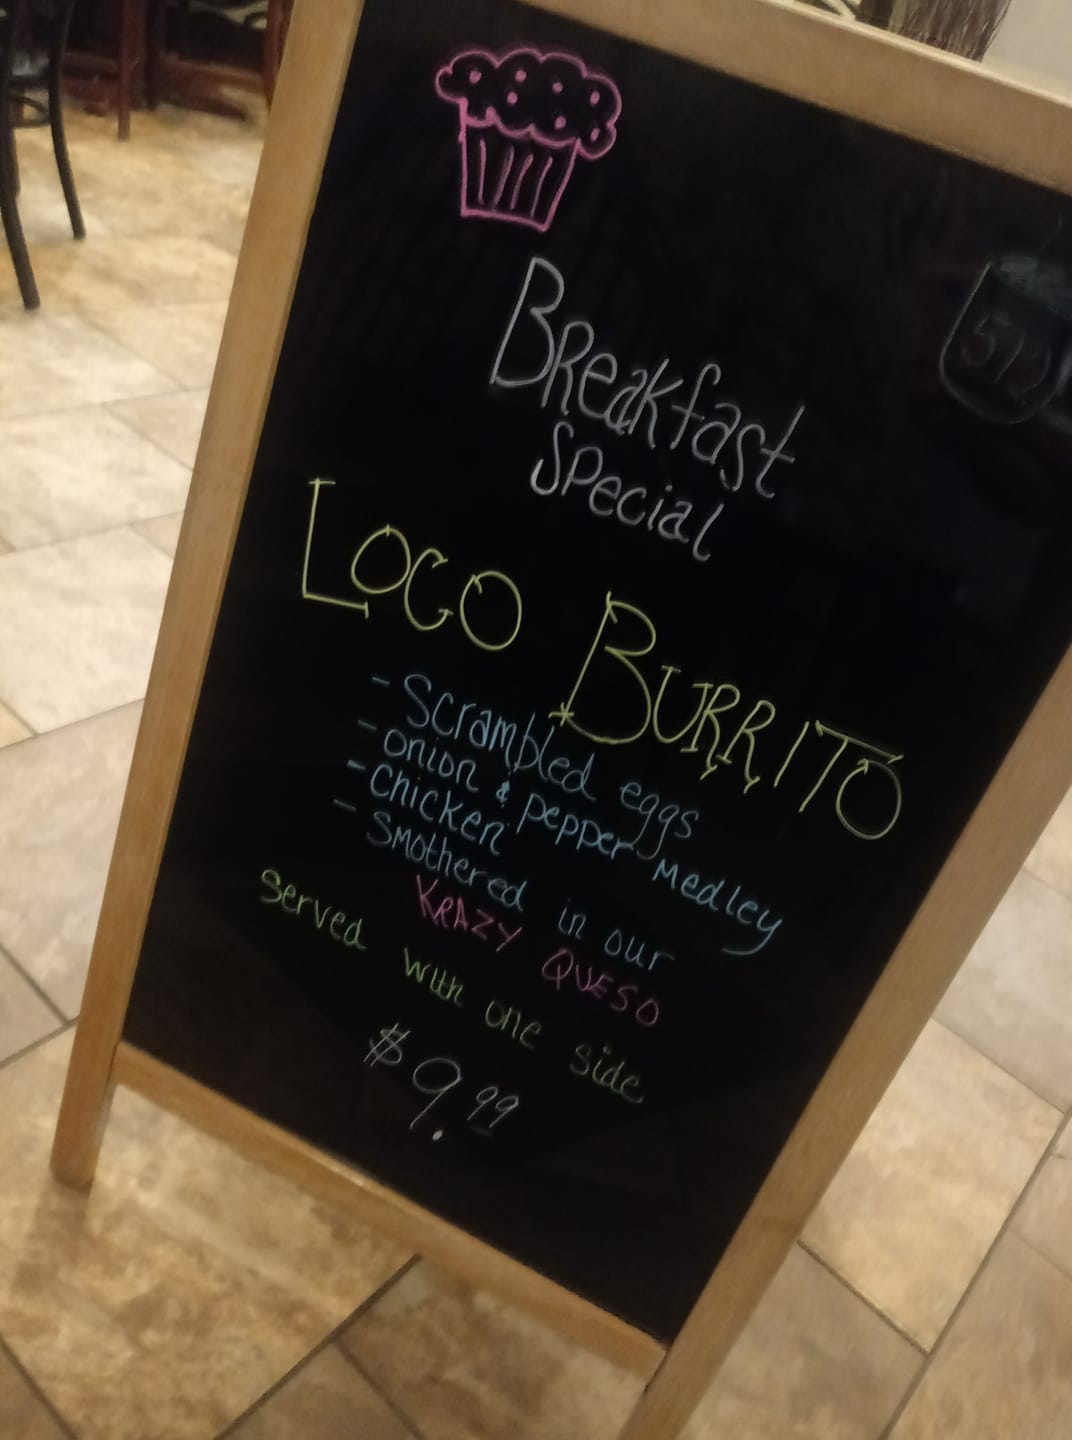 512
Breakfast
Special
LOCO BURRITO
- Scrambled eggs
- onion & pepper medley
- Chicken
- Smothered in our
KRAZY QUESO
Served with one side
$9.99